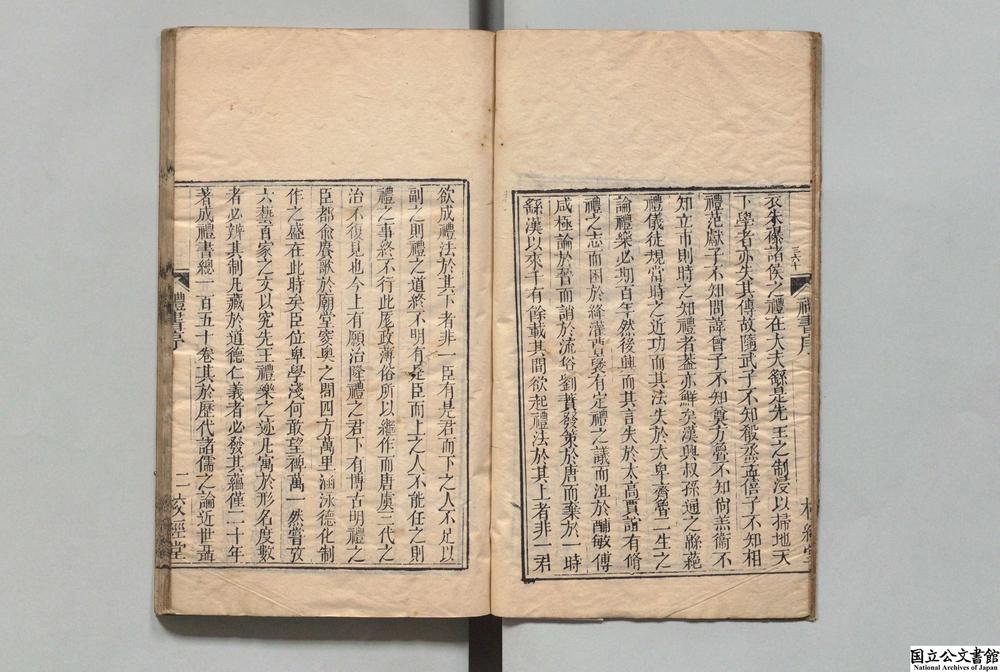 衣朱襮諸侯之禮在大夫繇是先王之制浸以掃地天
下學者亦失其傳故隨武子不知殽烝孟僖子不知相
禮范獻子不知問諱曾子不知奠方嘗不知尙羔衛不
知立市則時之知禮者蓋亦鮮矣漢興叔孫通之緜蕝
禮儀徒規當時之近功而其法失於大卑齊魯二生之
論禮樂必期百年然後興而其言失於太高賈誼有脩
禮之志而困於絳灌曹襃有定禮之議而沮於酺敏傅
咸極論於晉而誚於流俗劉蕡發策於唐而棄於一時
繇漢以來千有餘載其間欲起禮法於其上者非一君
禮書序
欲成禮法於其下者非一臣有是君而下之人不足以
副之則禮之道終不明有是臣而上之人不能任之則
禮之事終不行此厖政薄俗所以繼作而唐虞三代之
治不復見也今上有願治隆禮之君下有博古明禮之
臣都兪賡歌於廟堂窔奧之間四方萬里涵泳德化制
作之盛在此時矣臣位卑學淺何敢望裨萬一然嘗攷
六藝百家之文以究先王禮樂之迹凡寓於形名度數
者必辨其制凡藏於道德仁義者必發其蘊僅二十年
著成禮書總一百五十卷其於歷代諸儒之論近世聶
禮書序
二
校經堂
国立公文書館
National Archives of Japan